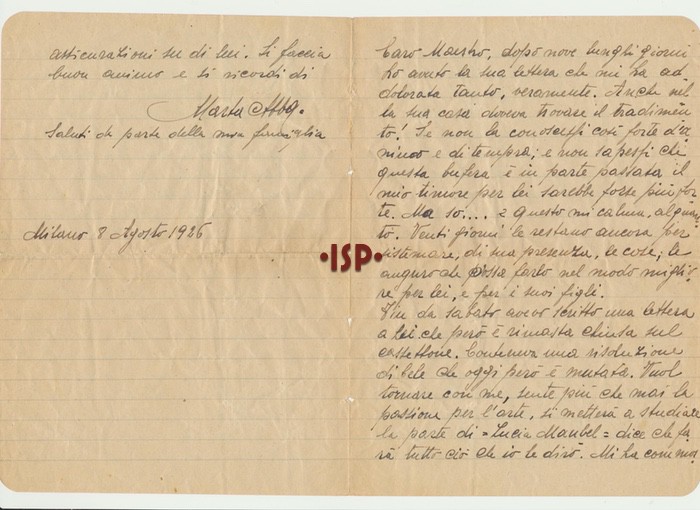 assicurazioni su di lei. Si faccia
buon animo e si ricordi di
Marta Abba.
Saluti da parte della mia famiglia
Milano 8 Agosto 1926
•ISP•
Caro Maestro, dopo nove lunghi giorni
ho avuto la sua lettera che mi ha ad,
dolorata tanto, veramente. Anche nel,
la sua casa doveva trovare il tradimen,
to! Se non la conoscessi così forte d'a
nimo e di tempra; e non sapessi che
questa bufera è in parte passata il
mio timore per lei sarebbe forse più for
te. Ma so.... e questo mi calma, alquan,
to. Venti giorni le restano ancora per
sistemare, di sua presenza, le cose; le
auguro che possa farlo nel modo miglio,
re per lei, e per i suoi figli.
Fin da sabato avevo scritto una lettera
a lei che però è rimasta chiusa sul
cassettone. Conteneva una risoluzione
di Cele che oggi però è mutata. Vuol
tornare con me, sente più che mai la
passione per l'arte, si metterà a studiare
la parte di = Lucia Maubel = dice che fa,
rà tutto ciò che io le dirò. Mi ha commos